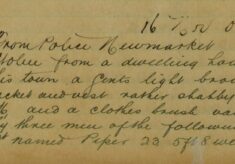 16
From Police Newmarket
Stolen from a dwelling hou
is town a Gents light bro
cket and vest rather shabby
and a clothes brush
three men of the followin
named Piper 23 5